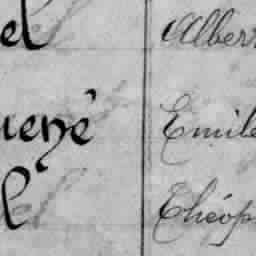 el Alber
uené Emile
l Théop